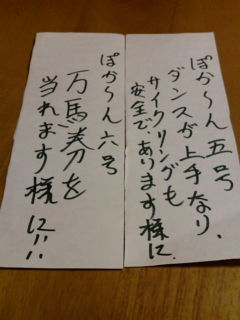 ぽか〜ん五号
ダンスが上手なり、
サイクリングも
安全であります様に.
ぽか〜ん六号
万馬券を
当れます様に!!